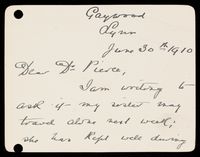 Gaywood
Lynn
June 30th 1910
Dear Dr Pierce,
I am writing to
ask if my sister may
travel alone next week;
she has kept well during